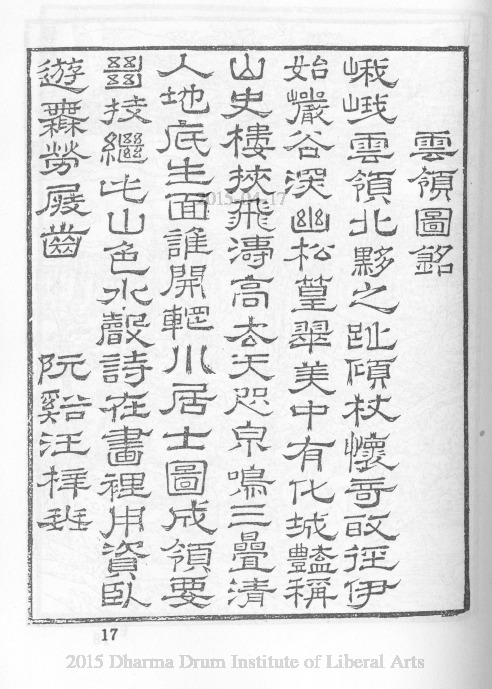 雲領圖銘
峨峨雲領北黟之趾杖懷哥故徑伊
始巖谷深幽松篁翠美中有化城豔稱
山史樓挾飛濤高去天咫泉鳴三疊清
人地底生面誰開輞川居士圖成領要
技繼山色水縠詩在畫裡用資臥
遊無勞屐齒 阮谿汪梓
17
2015-04-17
2015 Dharma Drum Institute of Liberal Arts